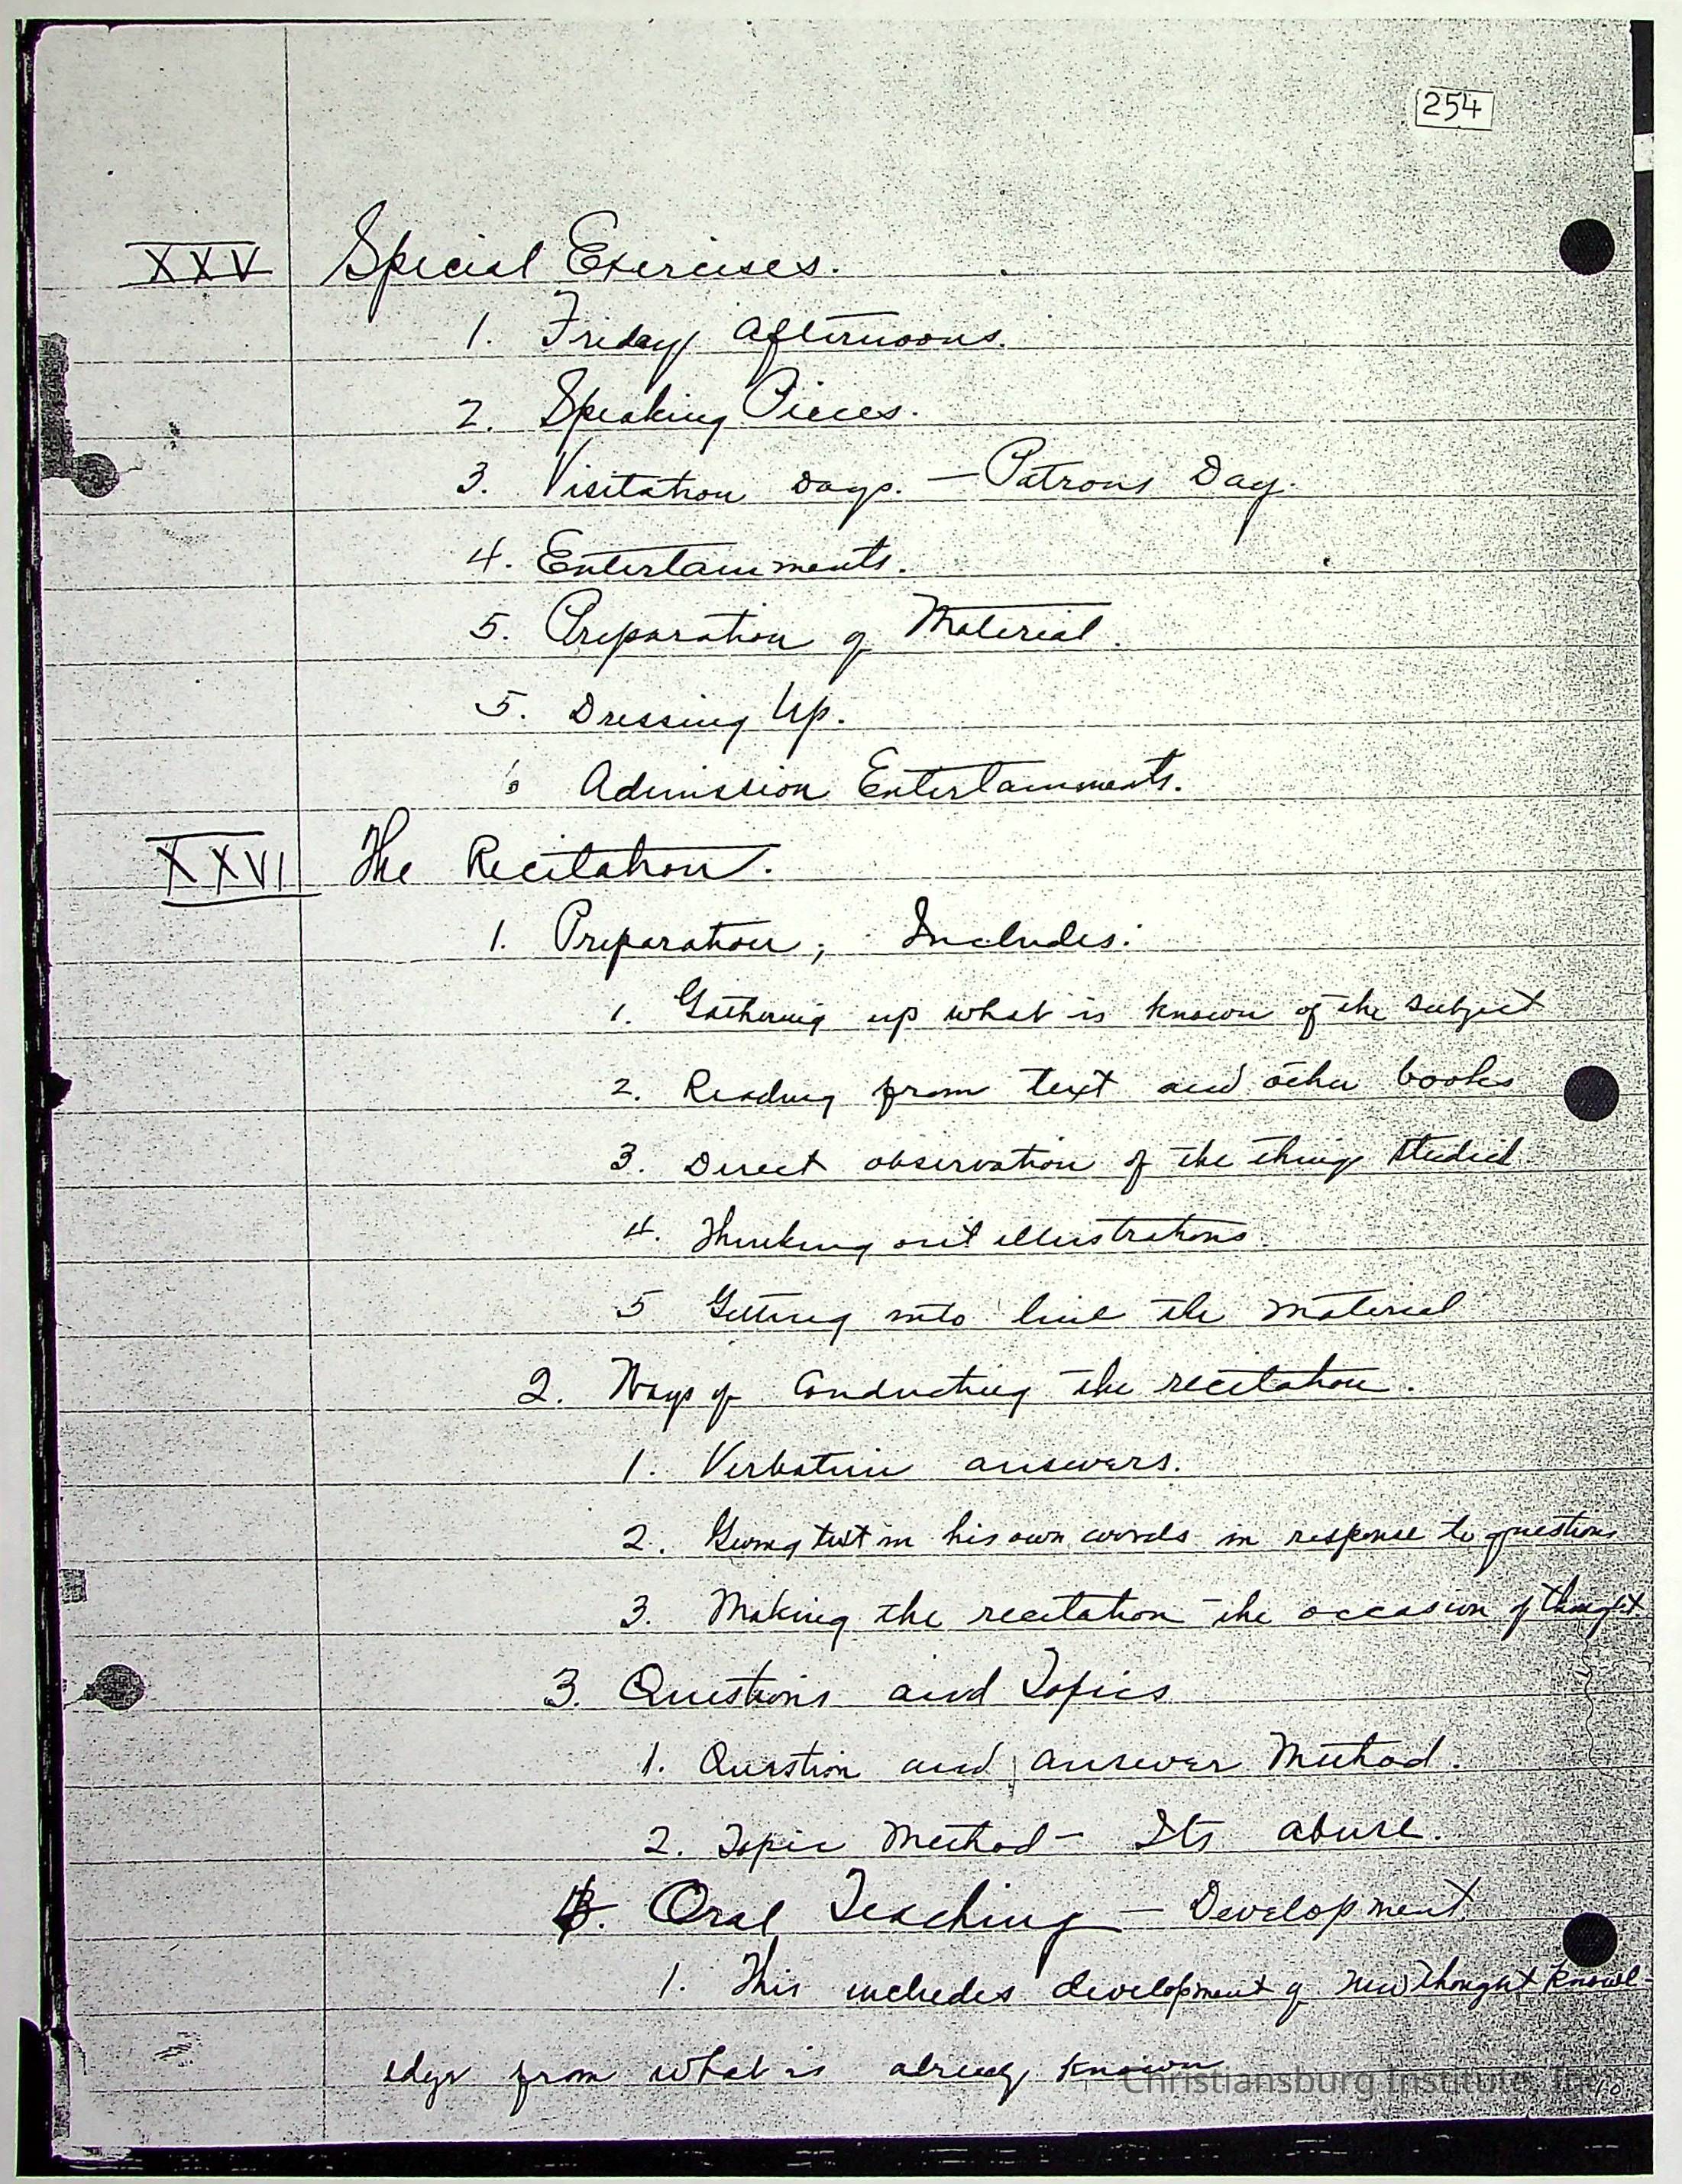 254
XXV Special Exercises.
1. Friday afternoons.
2. Speaking Pieces.
3. Visitation Days. — Patrons Day.
4. Entertainments.
5. Preparation of Material.
5. Dressing Up.
6 Admission Entertainments.
XXVI The Recitation.
1. Preparation; Includes:
1. Gathering up what is known of the subject
2. Reading from text and other books
3. Direct observation of the things studied
4. Thinking out illustrations.
5 Getting into line the material
2. Ways of Conducting the recitation.
1. Verbatim answers.
2. Giving text in his own words in response to questions
3. Making the recitation the occasion of thought
3. Questions and Topics
1. Question and answer Method.
2. Topic Method - Its abuse.
Oral Teaching — Development
1. This includes development of new thought knowl-
edge from what is already known
Christiansburg Institute, Inc.